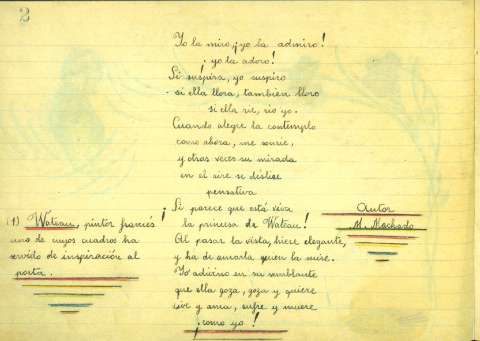 2
Yo la miro, ¡yo la admiro!
¡yo la adoro!
Si suspira, yo suspiro
si ella llora, tambien lloro
si ella rie, rio yo.
Cuando alegre la contemplo
como ahora, me sonrie,
y otras veces su mirada
en el aire se deslice
pensativa
¡Si parece que está viva
la princesa de Wateau!
Al pasar la vista, hiere elegante,
y ha de amarla quien la mire.
Yo adivino en su semblante
que ella goza, goza y quiere
vive y ama, sufre y muere
¡como yo!
Autor
M. Machado
(1) Wateau, pintor francés
uno de cuyos cuadros ha
servido de inspiración al
poeta.